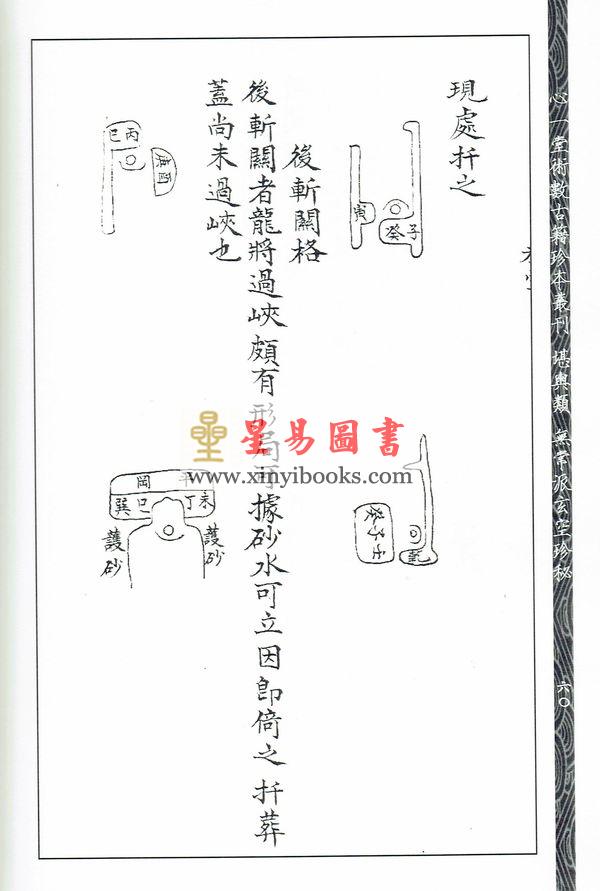 現處扦之
後斬關格
後斬關者龍將過峽頗有形局可據砂水可立因即倚之扦葬
蓋尚未過峽也
寅
癸子
丙巳
庚酉
癸子壬
平岡
巽巳丁未
護砂
護砂
星易圖書
www.xinyibooks.com
心一堂術數古籍珍本叢刊 堪輿類 無常派玄空珍秘
六〇